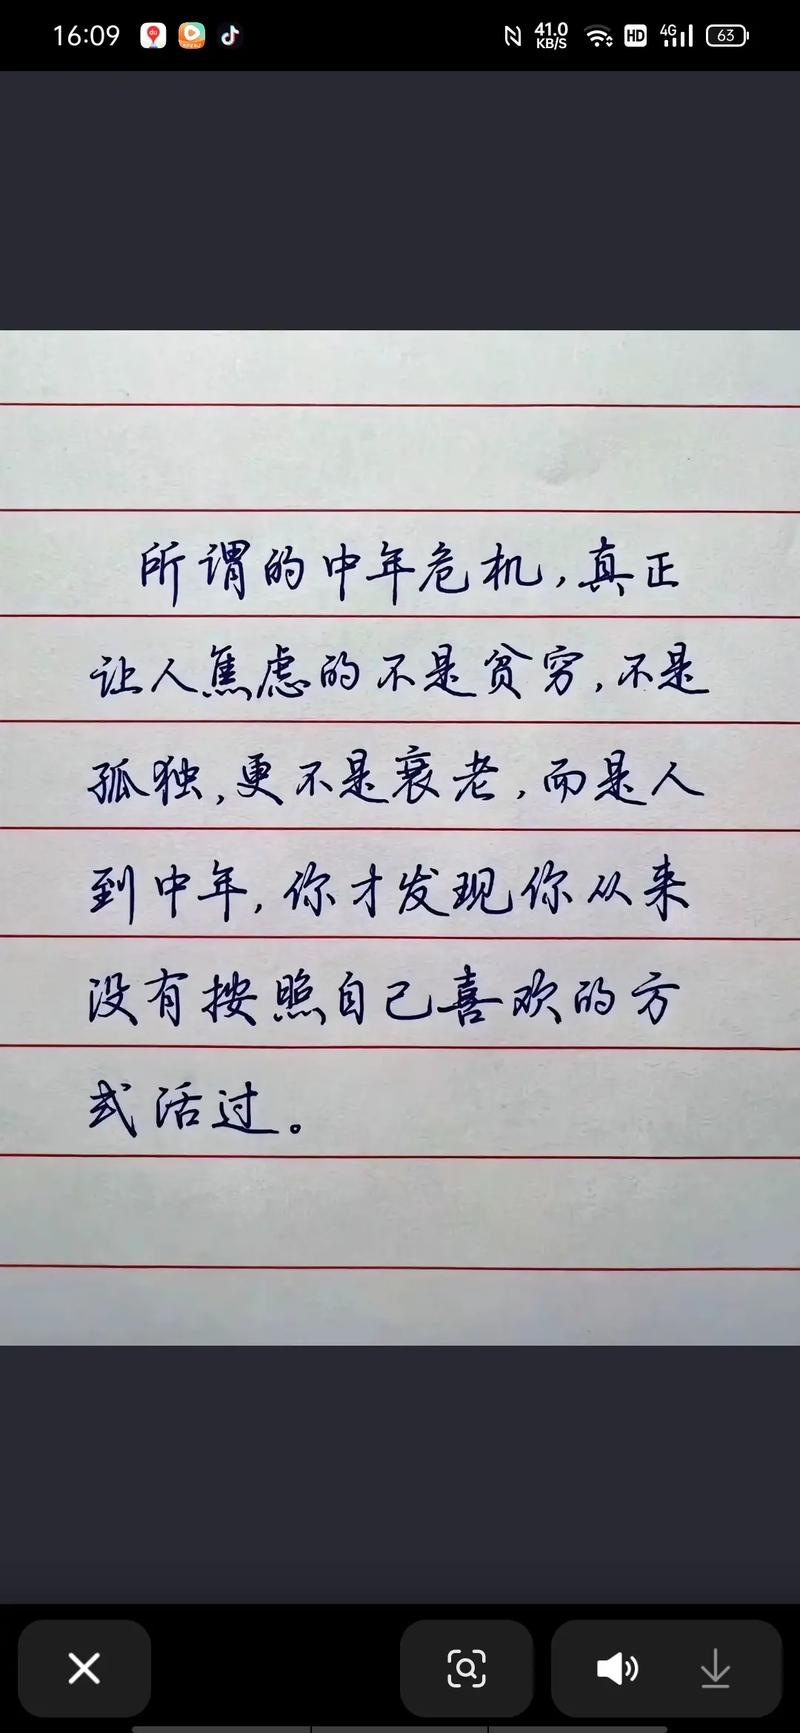 16:09
41.0
KB/S
HD
4G
63
所谓的中年危机，真正
让人焦虑的不是贫穷，不是
孤独，更不是衰老，而是人
到中年，你才发现你从来
没有按照自己喜欢的方
式活过。